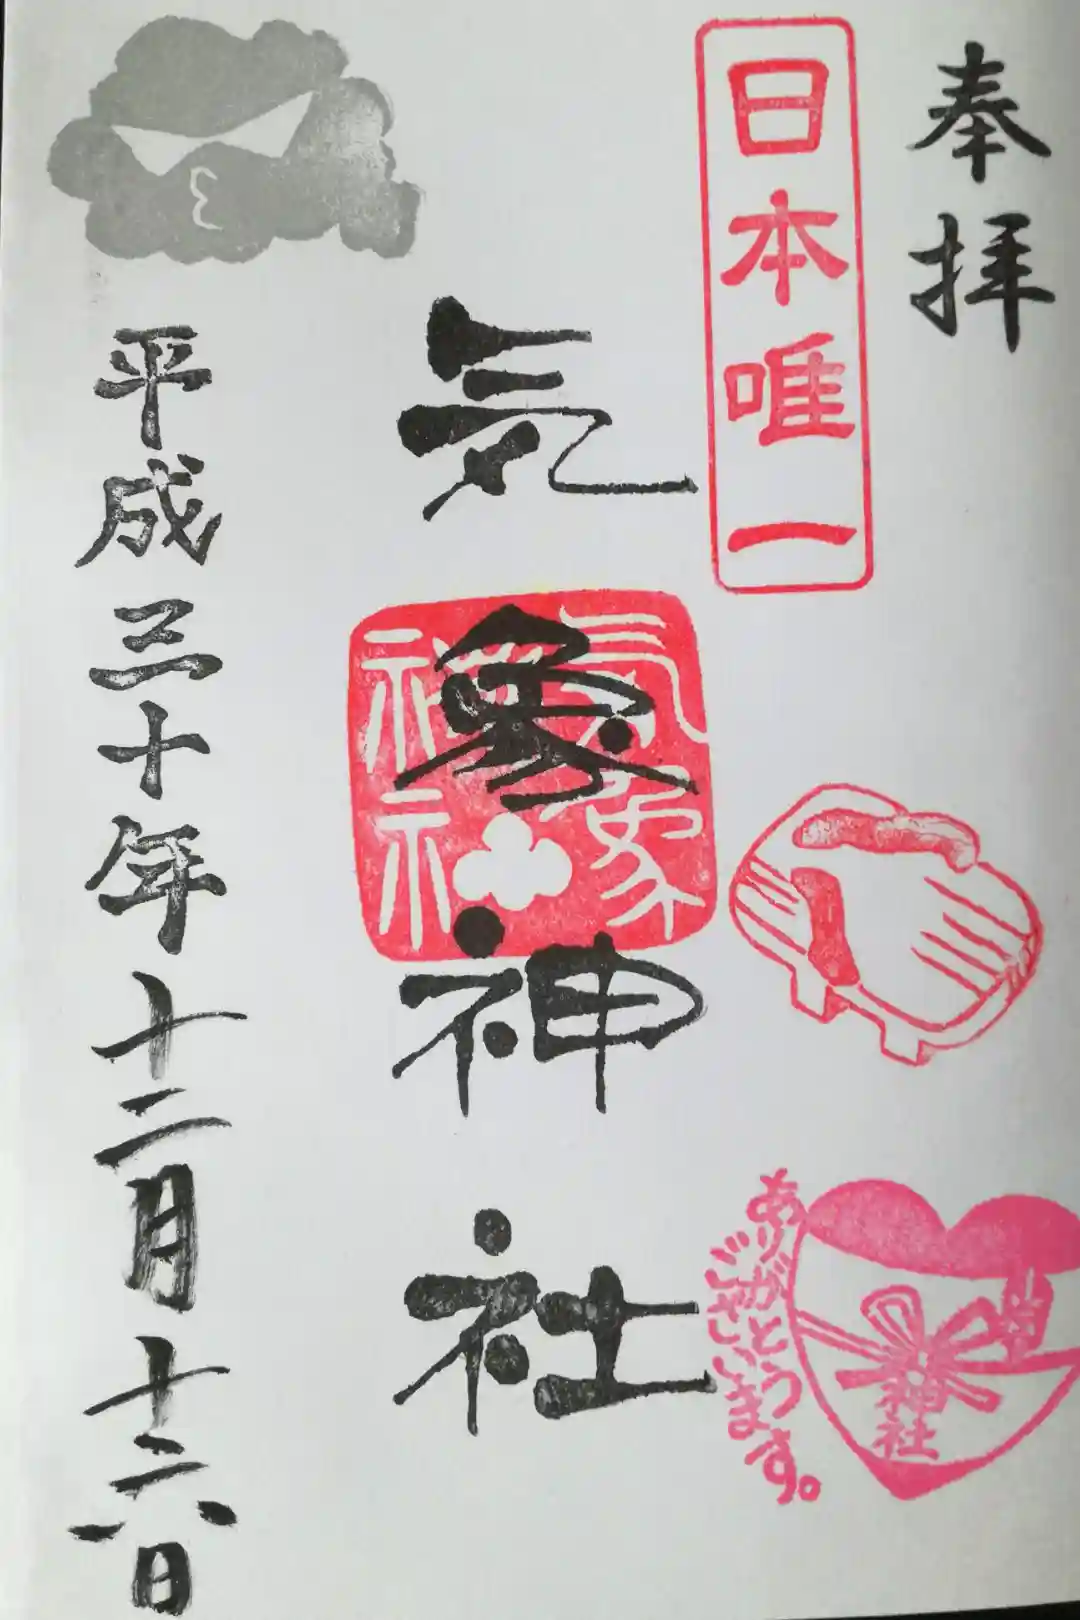 奉拝
日本唯一
気象神社
気象
神社
ありがとう
ございます。
神社
平成三十年十二月十六日